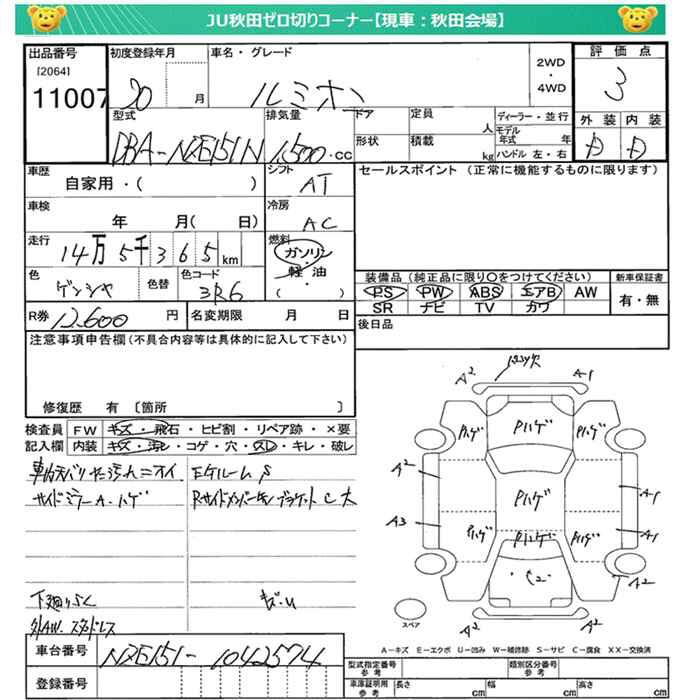 JU秋田ゼロ切りコーナー【現車：秋田会場】
出品番号
[2064]
11007
初度登録年月
20 月
車名・グレード
ルミオン
2WD
・
4WD
評価点
3
型式
DBA-NZE151N
排気量
1,500 cc
ドア
形状
定員
人
積載
kg
ディーラー・並行
モデル年式 年
ハンドル 左・右
外装 内装
D D
車歴
自家用・( )
シフト
AT
セールスポイント (正常に機能するものに限ります)
車検
年 月( 日)
冷房
AC
走行
14万5千365km
燃料
ガソリン
軽油
( )
色
ゲンシャ
色替
色コード
3R6
装備品 (純正品に限り○をつけてください)
新車保証書
PS PW ABS エアB AW
有・無
SR ナビ TV カワ
R券 12,600 円
名変期限 月 日
後日品
注意事項申告欄(不具合内容等は具体的に記入して下さい)
修復歴 有 〔箇所 〕
検査員記入欄
FW キズ・飛石・ヒビ割・リペア跡・×要
内装 キズ・汚れ・コゲ・穴・スレ・キレ・破レ
サイドミラーA・ハゲ
Eゲルーム S
下廻りSC
外AW. スタッドレス
A2 A1
Pハゲ
Pハゲ Pハゲ
A2
Pハゲ
A1
A3
A1
Pハゲ Pハゲ Pハゲ
A2
A2 A2
スペア
A-キズ E-エクボ U-凹み W-補修跡 S-サビ C-腐食 XX-交換済
車台番号
NZE151-1042574
登録番号
型式指定番号 参考
類別区分番号 参考
車庫証明用 参考
長さ cm 幅 cm 高さ cm